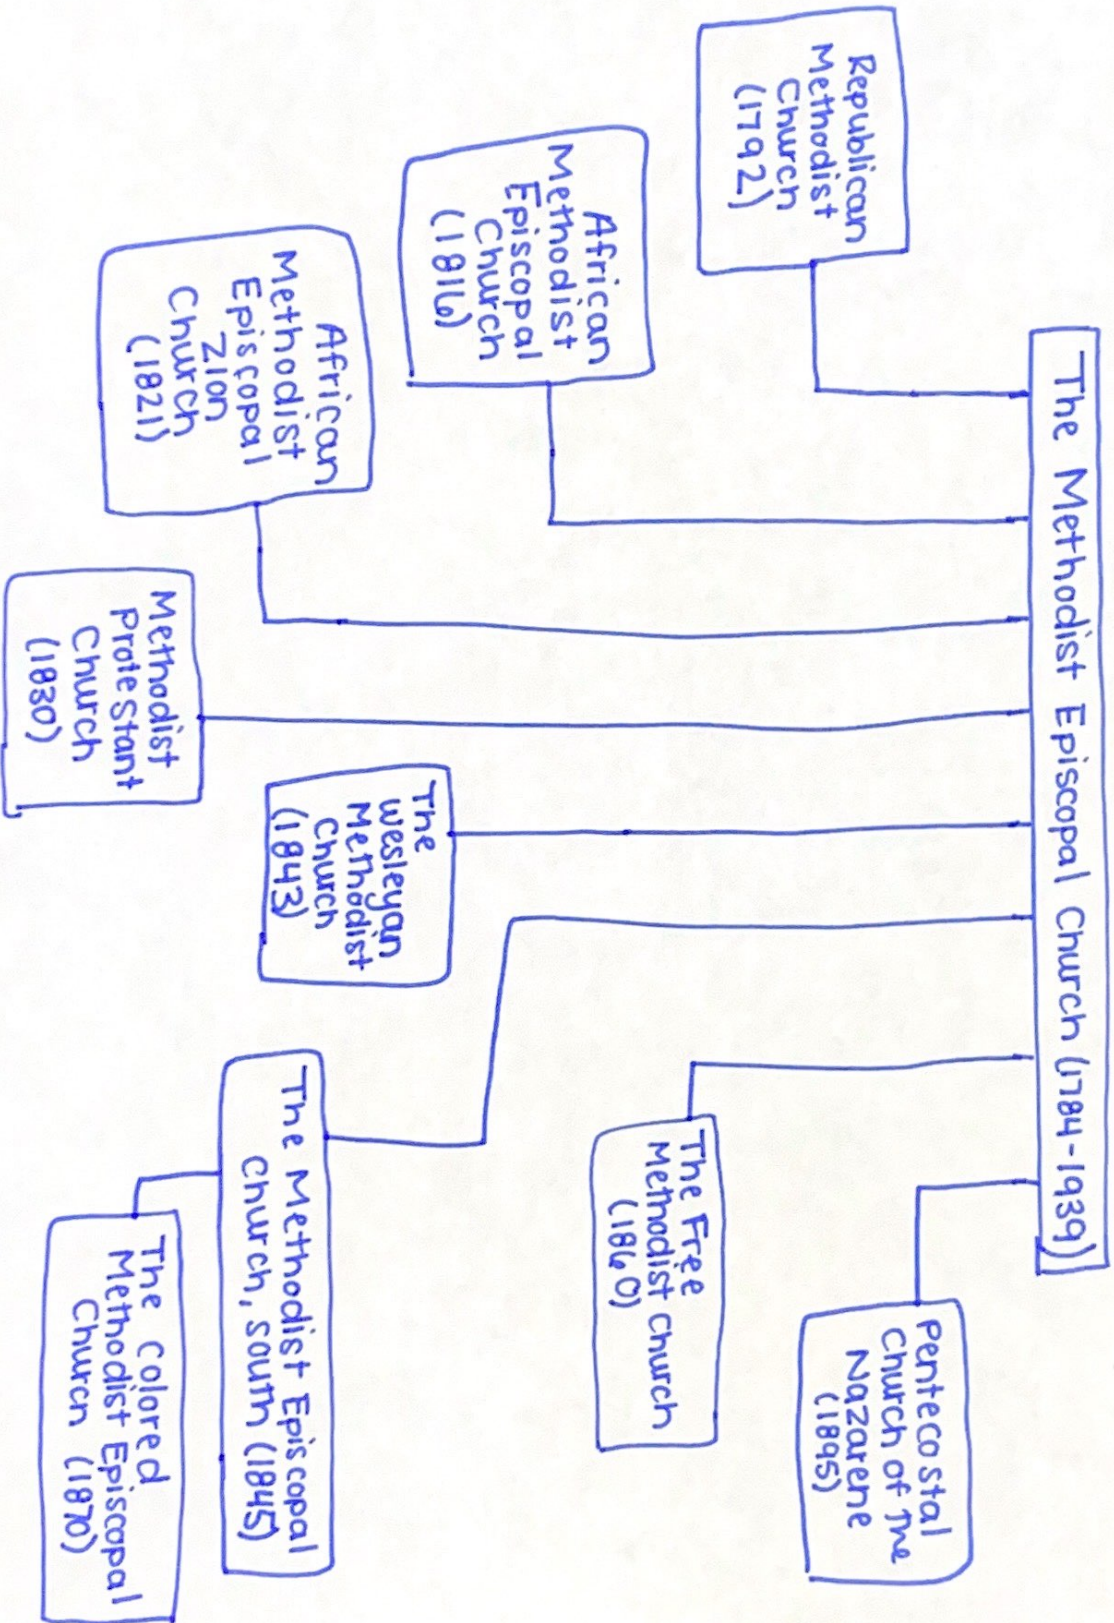 The Methodist Episcopal Church (1784-1939)
Republican
Methodist
Church
(1792)
African
Methodist
Episcopal
Church
(1816)
African
Methodist
Episcopal
Zion
Church
(1821)
Methodist
Protestant
Church
(1830)
The
Wesleyan
Methodist
Church
(1843)
The Methodist Episcopal
Church, South (1845)
The Colored
Methodist Episcopal
Church (1870)
The Free
Methodist Church
(1860)
Pentecostal
Church of the
Nazarene
(1895)